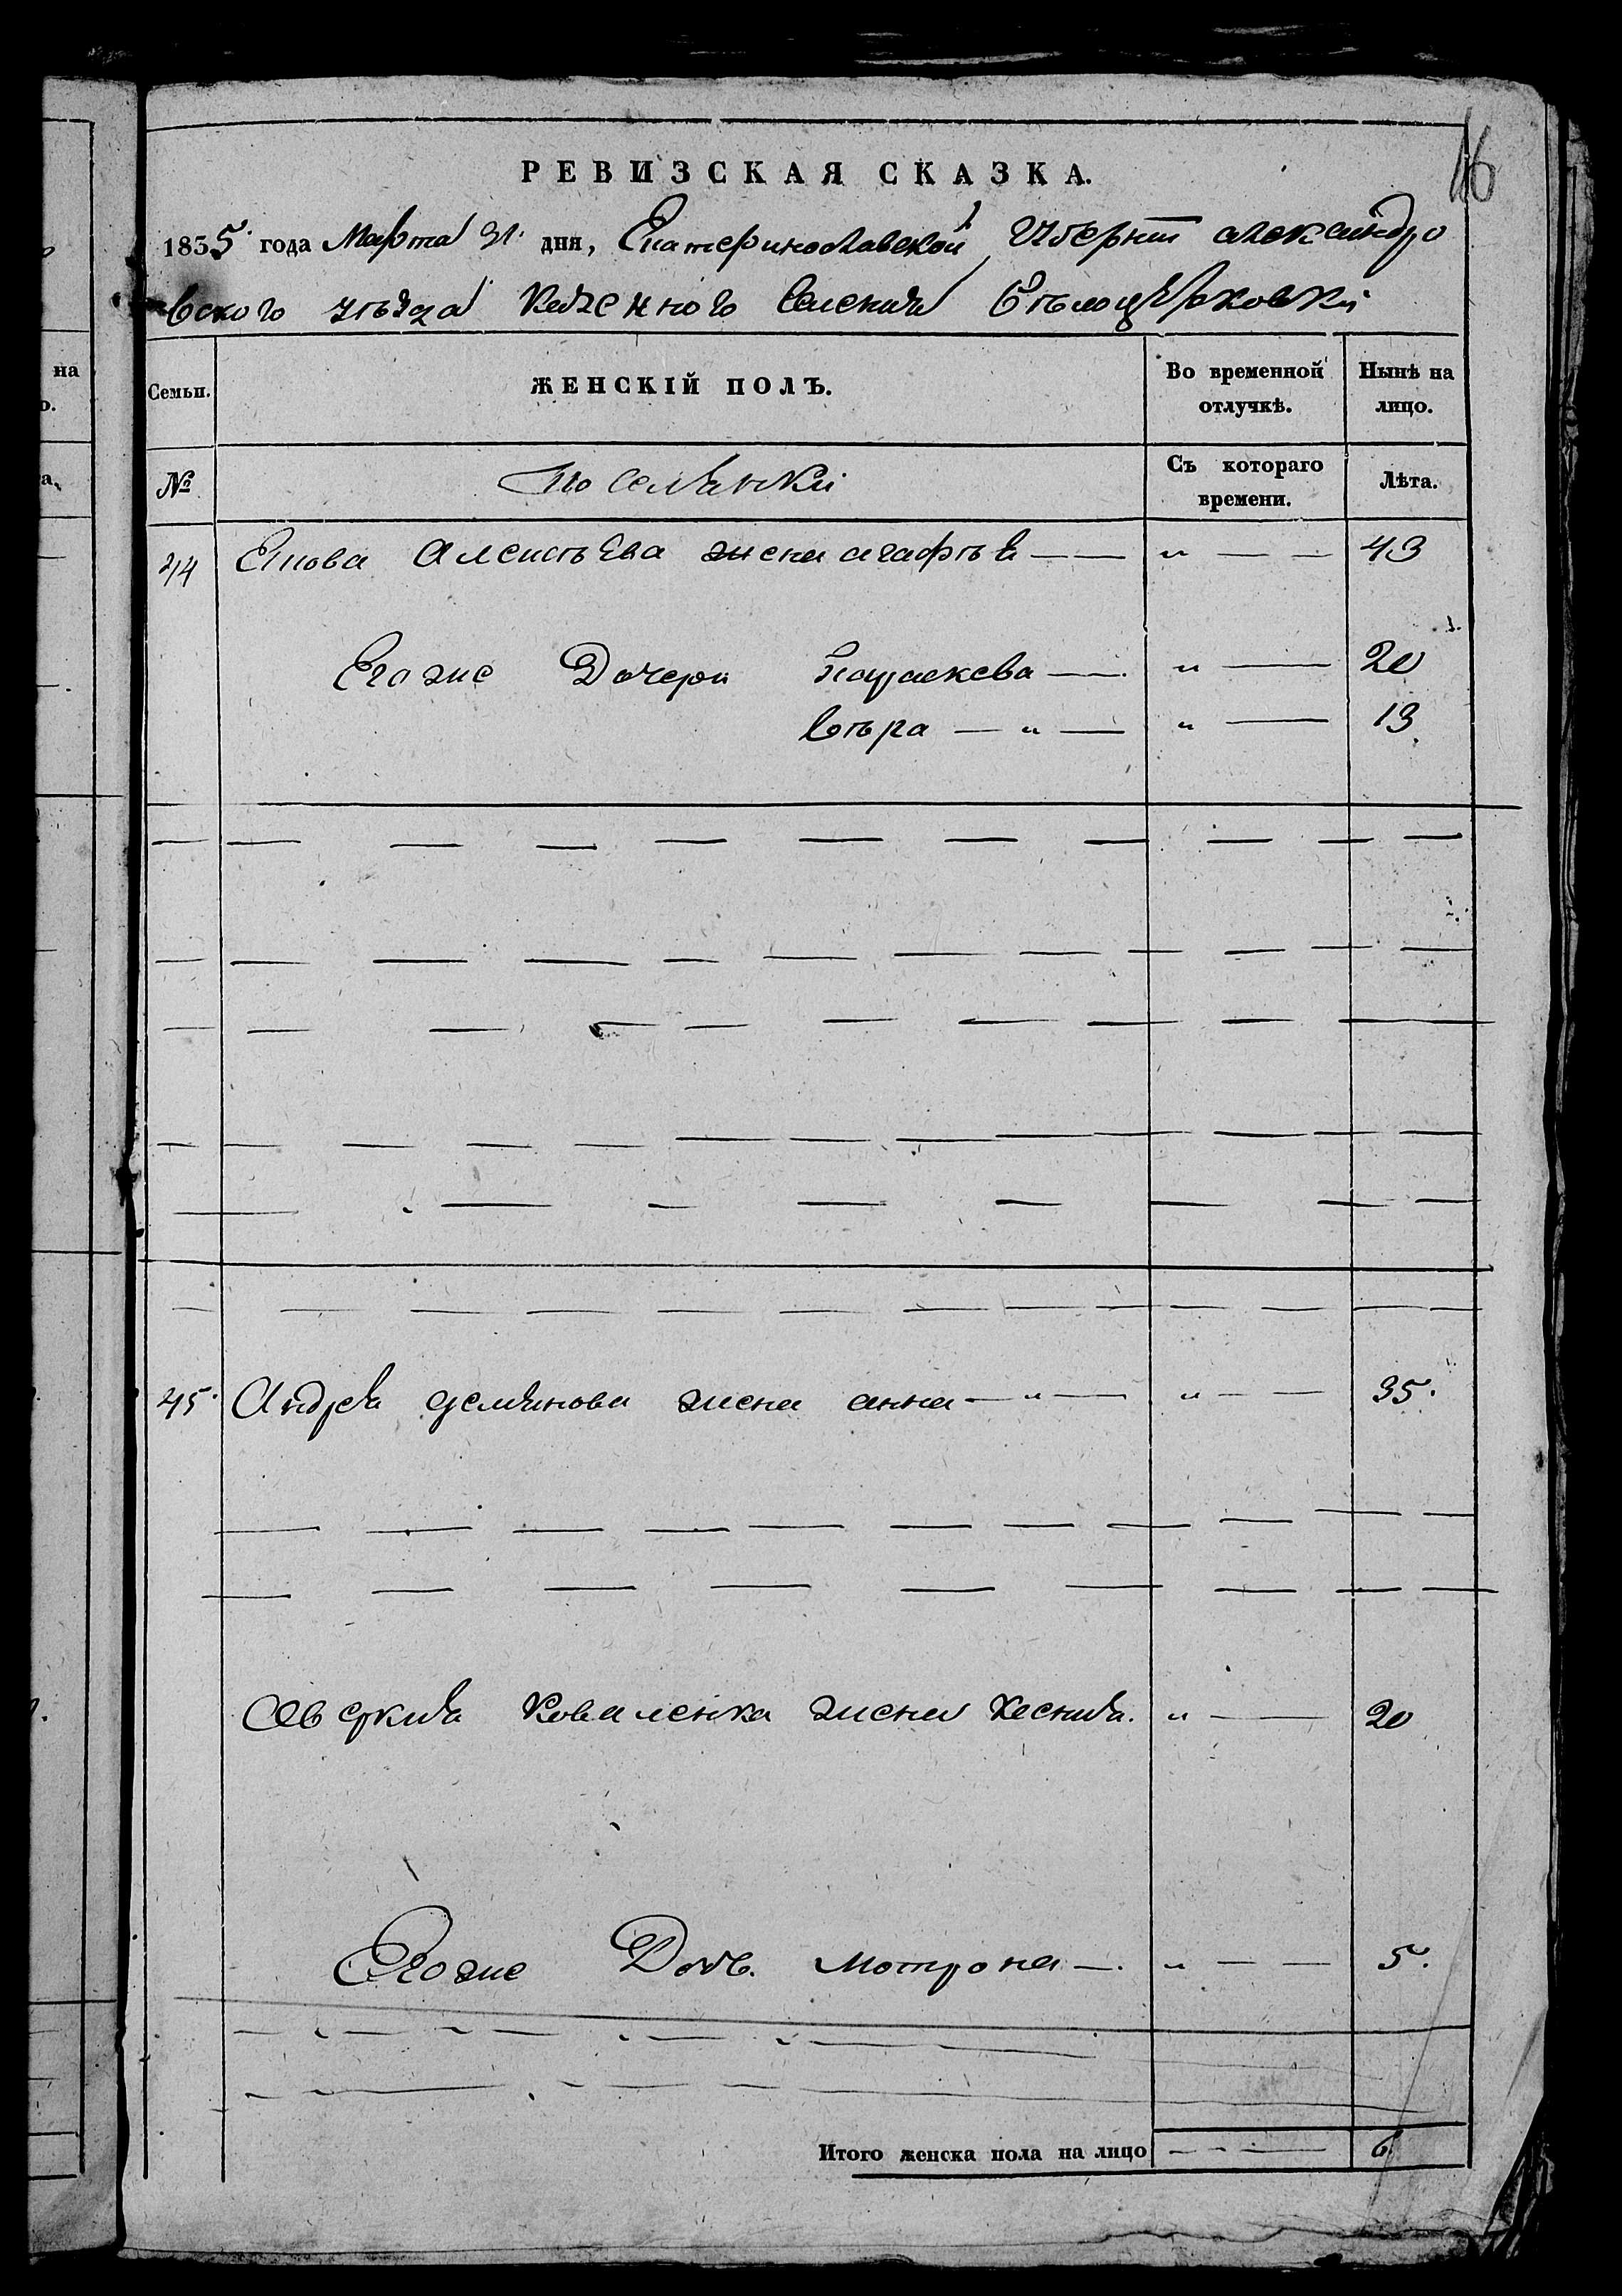 16
РЕВИЗСКАЯ СКАЗКА.
1835 года Марта 31. дня, Екатеринославской Губерніи александро
вского уѣзда Казенного Селенія Бѣлоцерковки
Семьи. ЖЕНСКІЙ ПОЛЪ. Во временной отлучкѣ. Нынѣ на лицо.
№ Поселянки Съ котораго времени. Лѣта.
44 Алексѣева жена агафья — — " — — 43
Егоже Дочери Параскева — " — 20
Вѣра — " — " — 13
45. Андрея демянова жена анна — " — " — — 35.
Аверкия Коваленка жена Ксения. " — 20
Егоже Дочь. мотрона — " — — 5.
Итого женска пола на лицо — — — 6
на
о.
а.